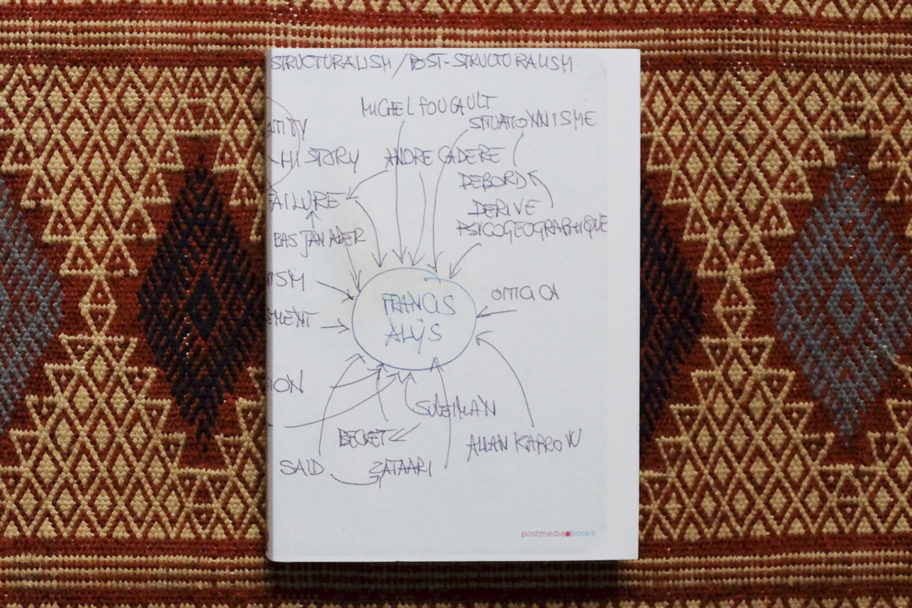 STRUCTURALISM / POST-STRUCTURALISM
MICHEL FOUCAULT
SITUATIONNISME
HISTORY
ANDRE CADERE
FAILURE
DEBORD
DERIVE
PSICOGEOGRAPHIQUE
BAS JAN ADER
ISM
EMENT
FRANCIS
ALŸS
OITICICA
ON
SULEIMAN
BECKET
ALLAN KAPROW
SAID
ZATAARI
postmedia●books